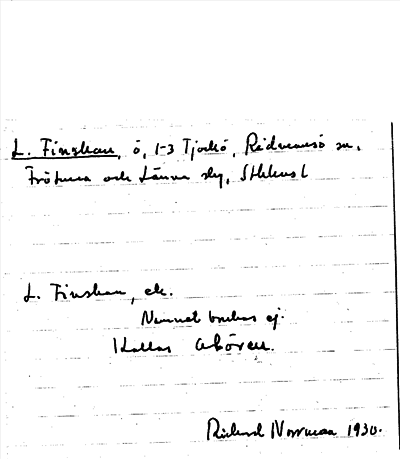 L. Finskan, ö, 1-3 Tjockö, Rådmansö sn,
Frötuna och Länna skg, Sthlms l
L. Finskan, ek.
Namnet brukas ej.
Kallas Aböreu.
Rickard Norrman 1930.